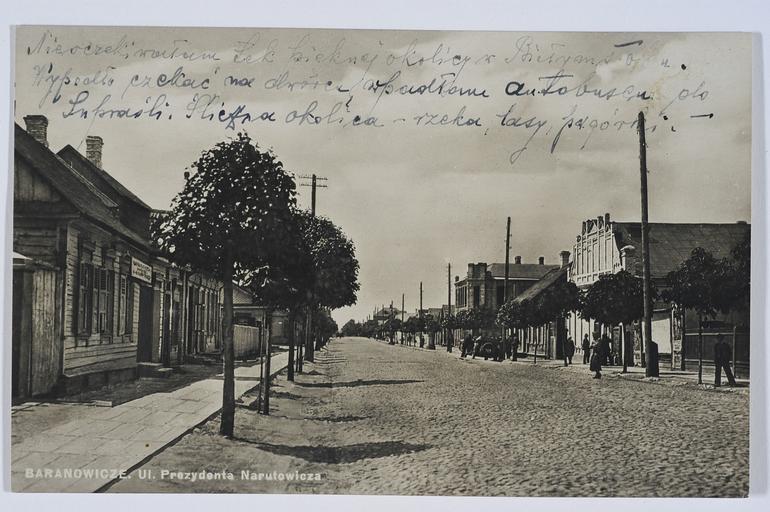 Nieoczekiwałam tak pięknej okolicy w Białymstoku.
Wypadło czekać na dworcu wpadłam autobusem do
Supraśli. Śliczna okolica - rzeka, lasy, pagórki. -
BARANOWICZE. Ul. Prezydenta Narutowicza